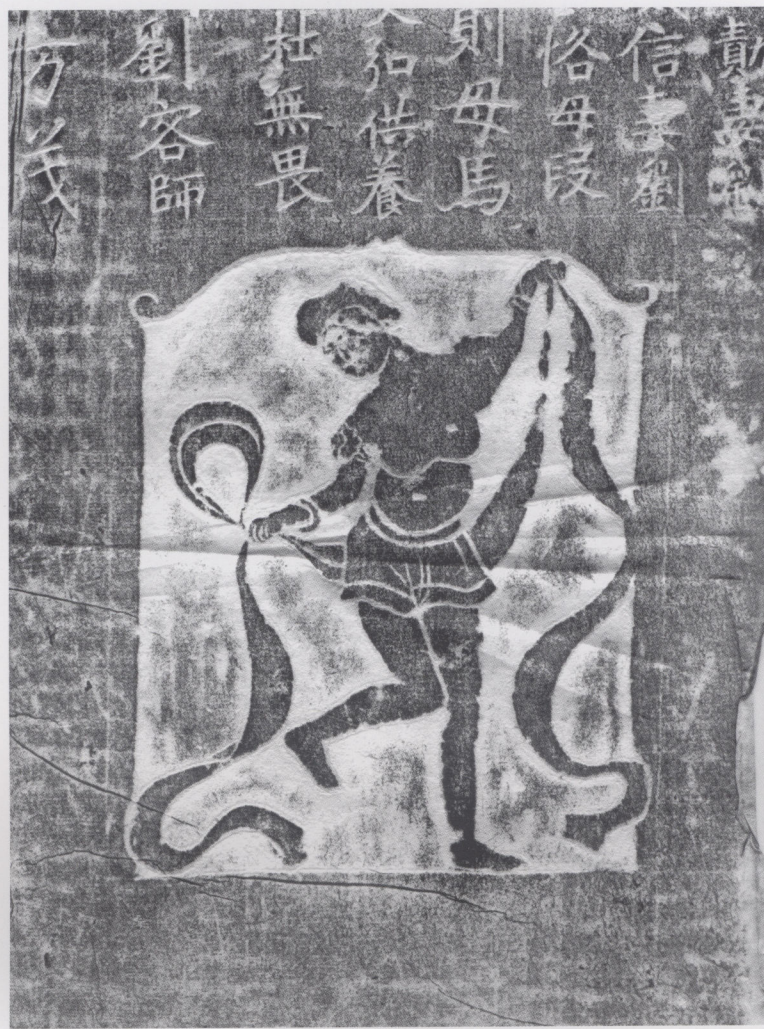 勣妻
信妻劉
恪母段
則母馬
弘供養
杜無畏
劉客師
方茂